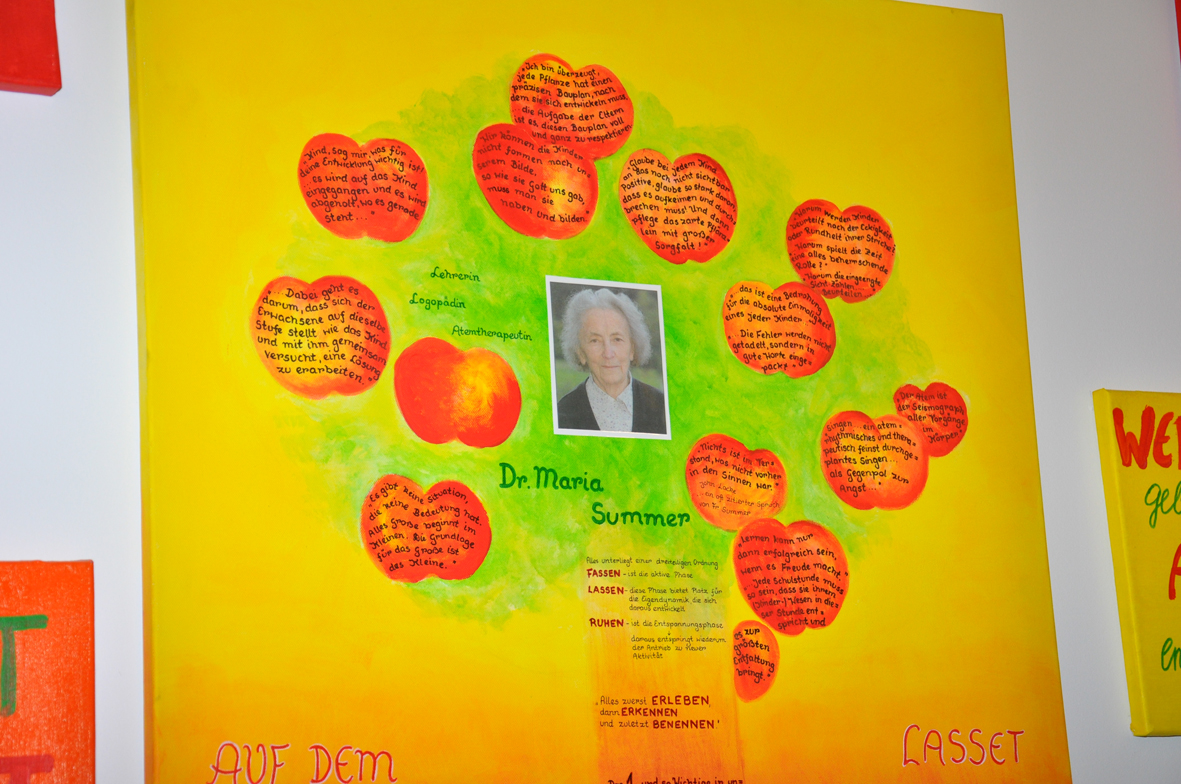 „Ich bin überzeugt,
jede Pflanze hat einen
präzisen Bauplan, nach
dem sie sich entwickeln muss,
die Aufgabe der Eltern
ist es, diesen Bauplan voll
und ganz zu respektieren
Wir können die Kinder
nicht formen nach un-
serem Bilde.
so wie sie Gott uns gab,
muss man sie
haben und bilden.
„Kind, sag mir, was für
deine Entwicklung wichtig ist!
es wird auf das Kind
eingegangen und es wird
abgeholt, wo es gerade
steht..."
Glaube bei jedem Kind
an das noch nicht sichtbar
Positive, glaube so stark daran
dass es aufkeimen und durch-
brechen muss! Und dann
pflege das zarte Pflänz-
lein mit großer
Sorgfalt!"
„Warum werden Kinder
beurteilt nach der Eckigkeit
oder Rundheit ihrer Striche?
Warum spielt die Zeit
eine alles beherrschende
Rolle?"
Warum die eingeengte
Sicht: Zählen...
beurteilen...
das ist eine Bedrohung
für die absolute Einmaligkeit
eines jeden Kindes..."
Die Fehler werden nicht
getadelt, sondern in
gute Worte einge-
packt"
„Dabei geht es
darum, dass sich der
Erwachsene auf dieselbe
Stufe stellt wie das Kind
und mit ihm gemeinsam
versucht, eine Lösung
zu erarbeiten."
Lehrerin
Logopädin
Atemtherapeutin
Dr. Maria
Summer
„Der Atem ist
der Seismograph
aller Vorgänge
im
Körper"
Singen ein atem-
rhythmisches und thera-
peutisch feinst durchge-
plantes Singen...
als Gegenpol zur
Angst..."
„Nichts ist im Ver-
stand, was nicht vorher
in den Sinnen war."
John Locke
... ein oft zitierter Spruch
von Dr. Summer
„Es gibt keine Situation,
die keine Bedeutung hat.
Alles Große beginnt im
Kleinen. Die Grundlage
für das Große ist
das Kleine."
„Lernen kann nur
dann erfolgreich sein,
wenn es Freude macht"
„Jede Schulstunde muss
so sein, dass sie ihrem
(Kinder-) Wesen in die-
ser Stunde ent-
spricht und
es zur
größten
Entfaltung
bringt."
Alles unterliegt einer dreimaligen Ordnung
FASSEN - ist die aktive Phase
LASSEN - diese Phase bietet Platz für
die Eigendynamik die sich
daraus entwickelt
RUHEN - ist die Entspannungsphase
daraus entspringt wiederum
der Antrieb zu neuer
Aktivität
„Alles zuerst ERLEBEN,
dann ERKENNEN
und zuletzt BENENNEN"
AUF DEM
LASSET
und so Wichtige in uns
T
T
WE
gel
A
en